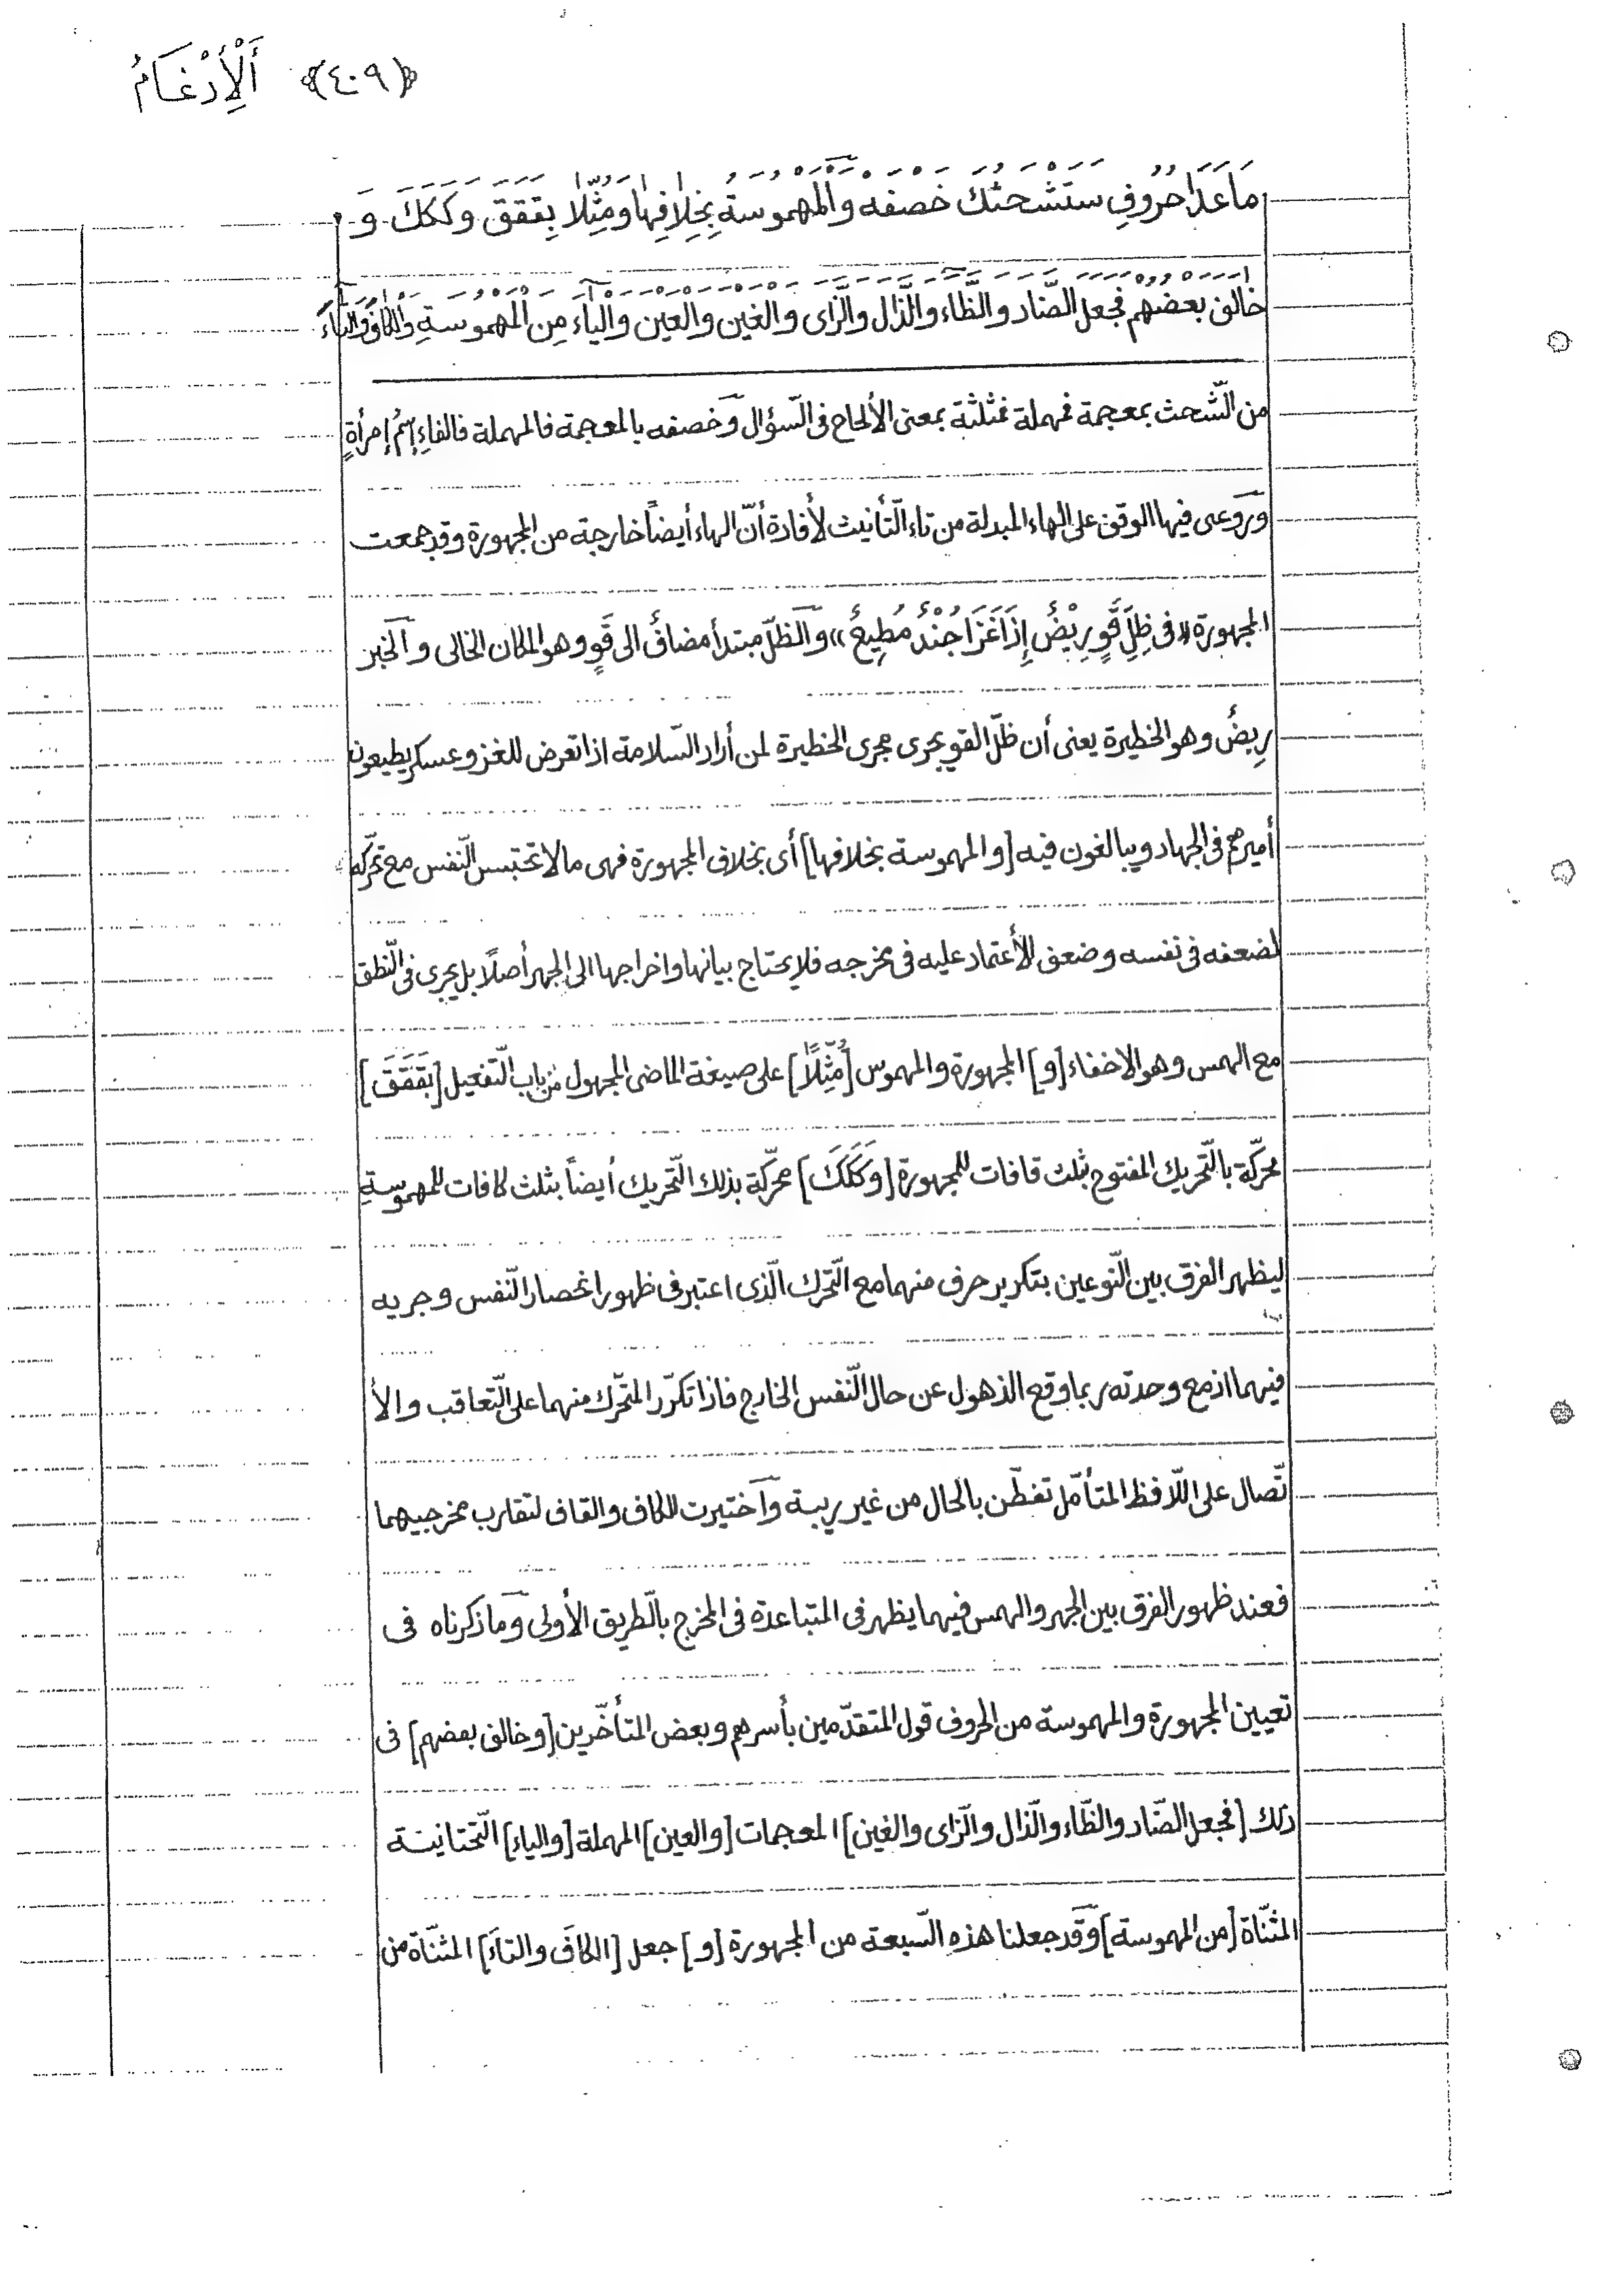 ﴿٤٠٩﴾ أَلْأِدْغَامُ
مَاعَدَا حُرُوفِ سَتَشْحَثُكَ خَصْفَهْ وَالْمَهْمُوسَةُ بِخِلَافِهَا وَمُثِّلَا بِقَقَقَ وَكَكَكَ وَ
خَالَفَ بَعْضُهُمْ فَجَعَلَ الضَّادَ وَالظَّاءَ وَالذَّالَ وَالزَّاىَ وَالْغَيْنَ وَالْعَيْنَ وَالْيَاءَ مِنَ الْمَهْمُوسَةِ وَالْكَافَ وَالتَّاءَ
من الشّحث بمعجمة فمهملة فمثلثة بمعنى الألحاح فى السّؤال وخصفه بالمعجمة فالمهملة فالفاءِ إسمُ إمرأةٍ
وروعى فيها الوقف على الهاء المبدلة من تاء التّأنيث لأفادة أنّ الهاء أيضاً خارجة من المجهورة وقد جمعت
المجهورة «فى ظِلِّ قَوٍّ رِبْضٌ إِذَا غَزَا جُنْدٌ مُطِيعٌ» والظلّ مبتدأ مضافٌ الى قَوٍ وهو المكان الخالى و الخبر
رِبضٌ وهو الخظيرة يعنى أن ظلّ القو يجرى مجرى الخظيرة لمن أراد السّلامة اذا تعرض للغزو عسكر يطيعون
أميرهم فى الجهاد ويبالغون فيه [و المهموسة بخلافها] أى بخلاف المجهورة فهى مالا تحتبس النّفس مع تحرّكه
لضعفه فى نفسه وضعف الأعتماد عليه فى مخرجه فلا يحتاج بيانها واخراجها الى الجهر أصلاً بل يجرى فى النّطق
مع الهمس وهو الاخفاء [و] المجهورة والمهموس [مُثِّلاً] على صيغة الماضى المجهول من باب التّفعيل [بِقَقَقَ]
محرّكة بالتّحريك المفتوح بثلث قافات للمجهورة [وكَكَكَ] محرّكة بذلك التّحريك أيضاً بثلث كافات للمهموسةِ
ليظهر الفرق بين النّوعين بتكرير حرف منهما مع التّحرك الّذى اعتبر فى ظهور انحصار النّفس وجريه
فيهما اذ مع وحدته ربما وقع الذهول عن حال النّفس الخارج فاذا تكرّر المتحّرك منهما على التّعاقب و الأ
تّصال على اللّافظ المتأمّل تفطّن بالحال من غير ريبة وآختيرت للكاف والقاف لتقارب مخرجيهما
فعند ظهور الفرق بين الجهر والهمس فيهما يظهر فى المتباعدة فى المخرج بالّطريق الأولى وما ذكرناه فى
تعيين المجهورة والمهموسة من الحروف قول المتقدّمين بأسرهم وبعض المتأخّرين [وخالف بعضهم] فى
ذلك [فجعل الضّاد والظّاء والّذال والّزاى والغين] المعجمات [والعين] المهملة [والياء] التّحتانيّة
المثنّاة [من المهموسة] وقد جعلنا هذه السّبعة من المجهورة [و] جعل [الكافَ والتاءَ] المثنّاة من